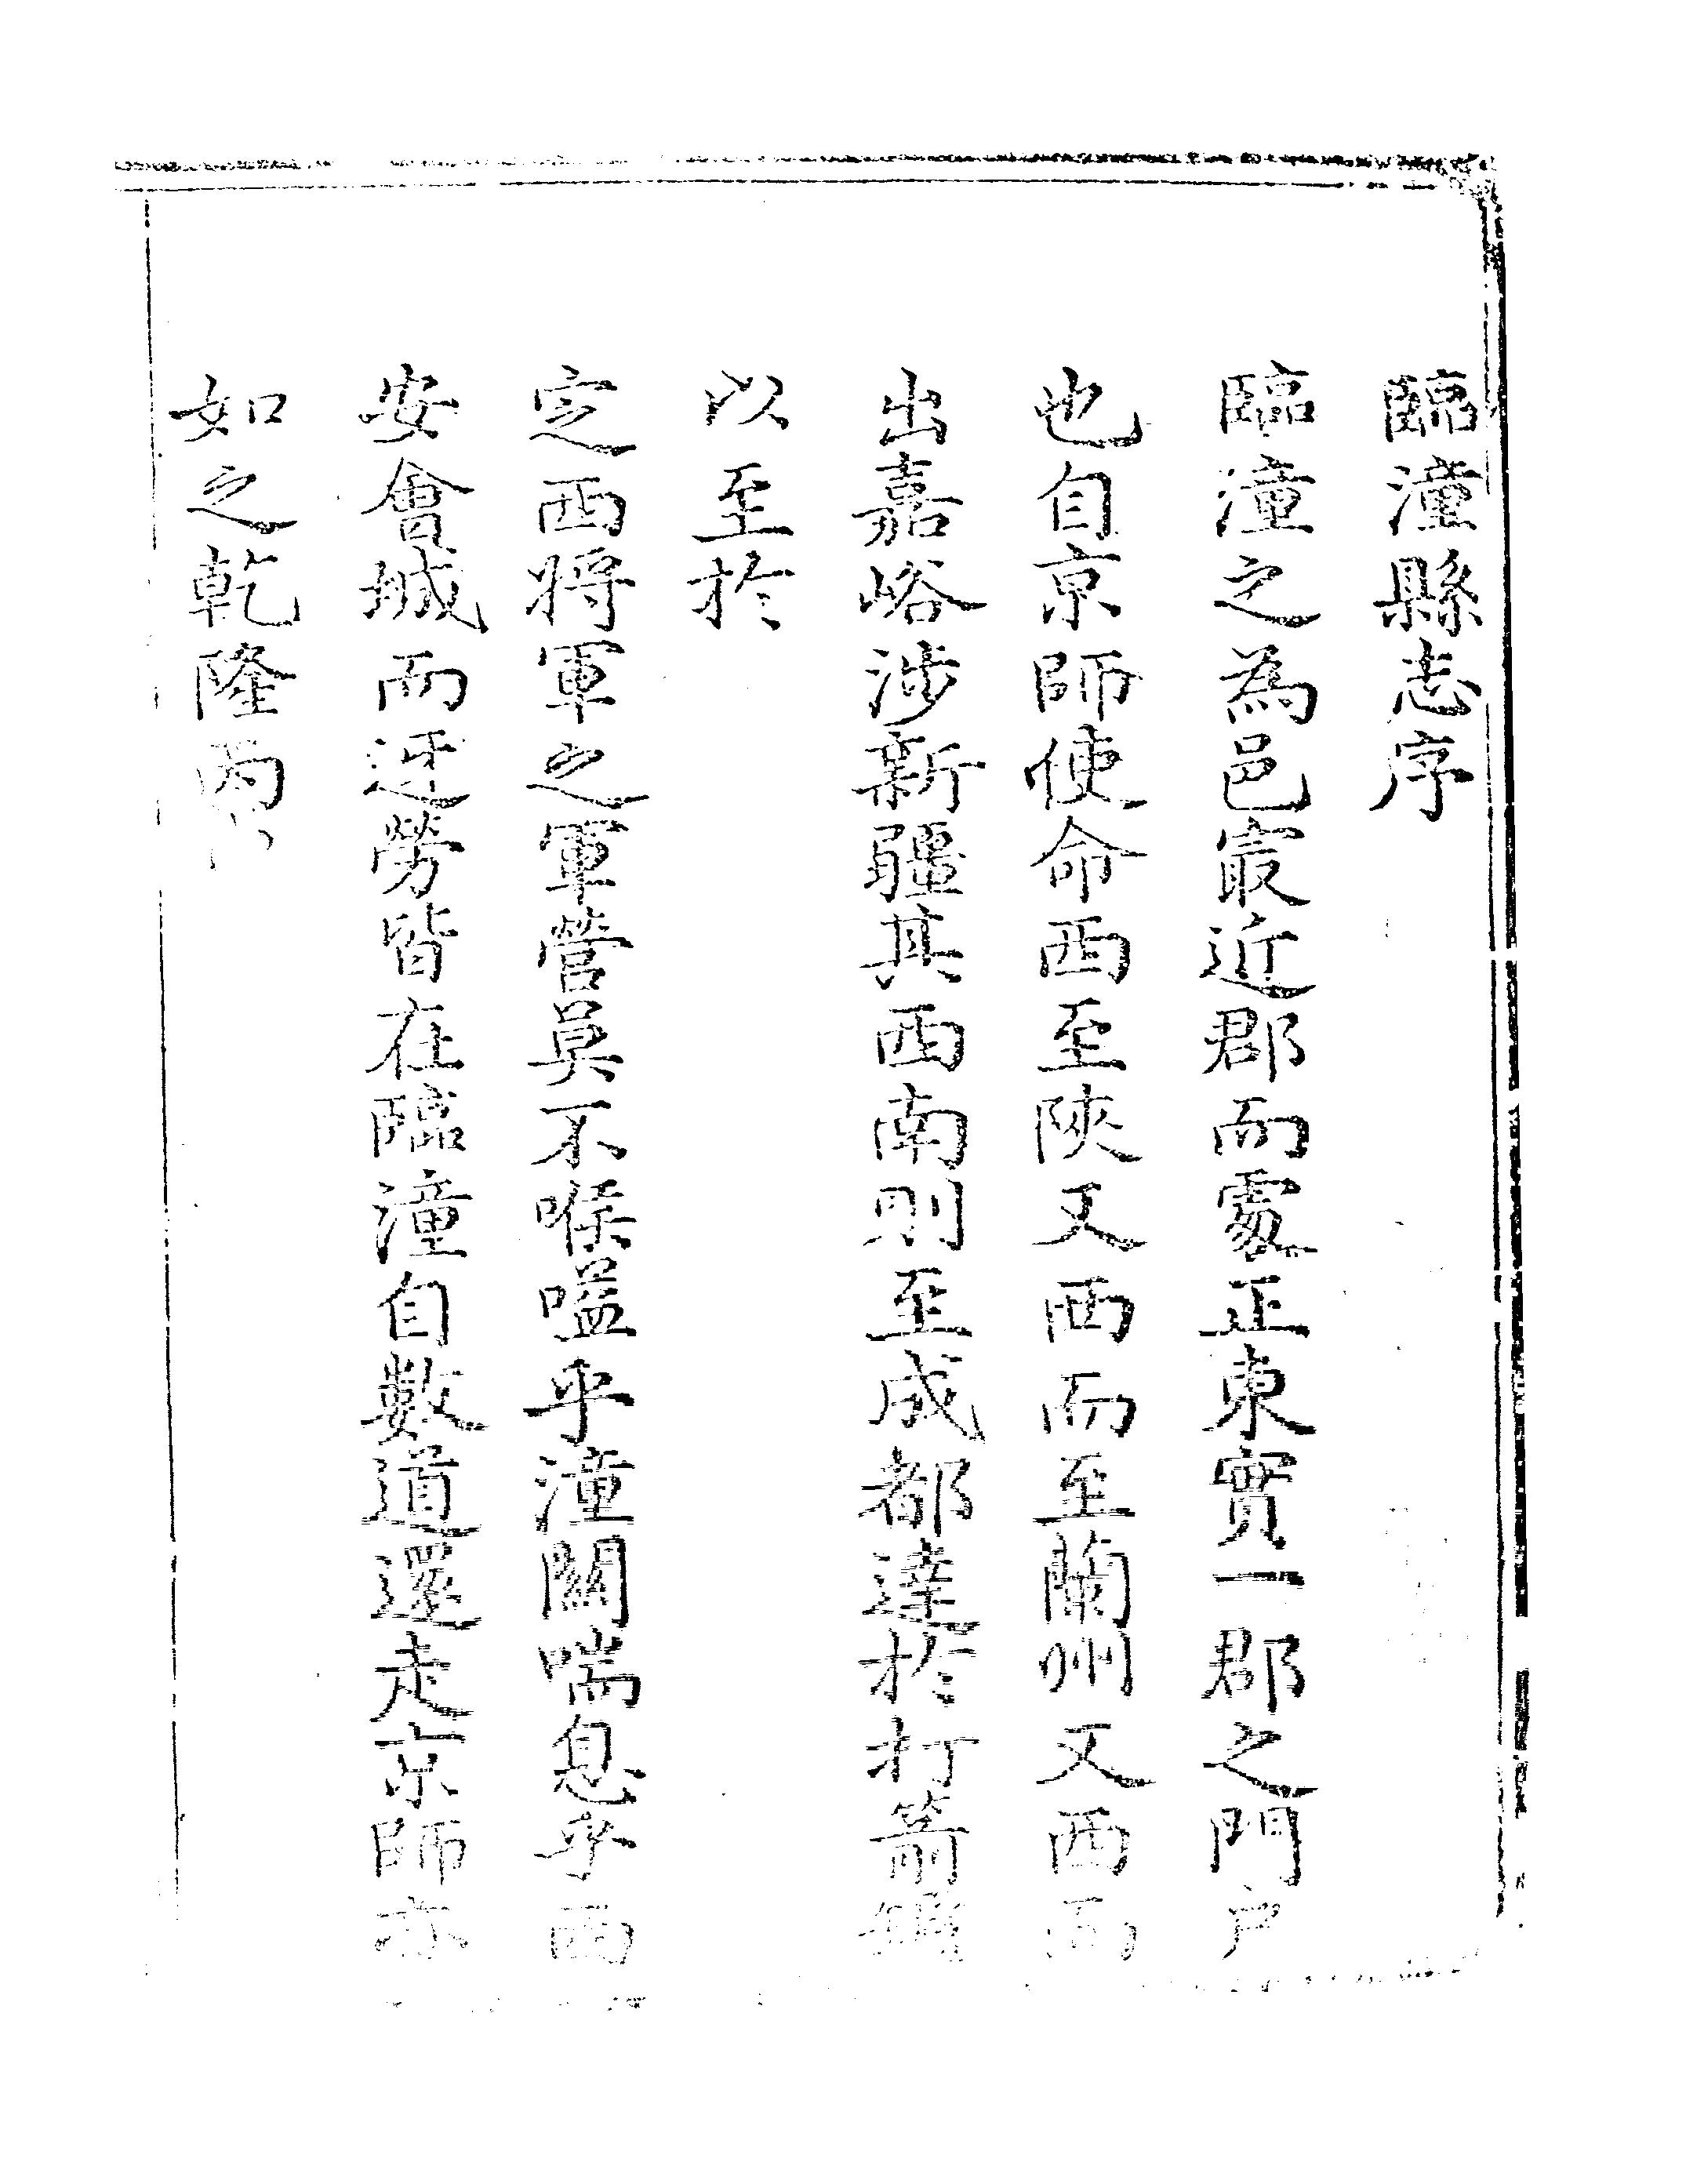 臨潼縣志序
臨潼之為邑寂近郡而處正東實一郡之門戶
也自京師使命西至陝又西而至蘭州又西而
出嘉峪涉新疆其西南則至成都達於打箭鑪
以至於
定西将軍之軍營莫不喉嗌乎潼關喘息乎西
安會城而迓勞皆在臨潼自數道還走京師亦
如之乾隆丙